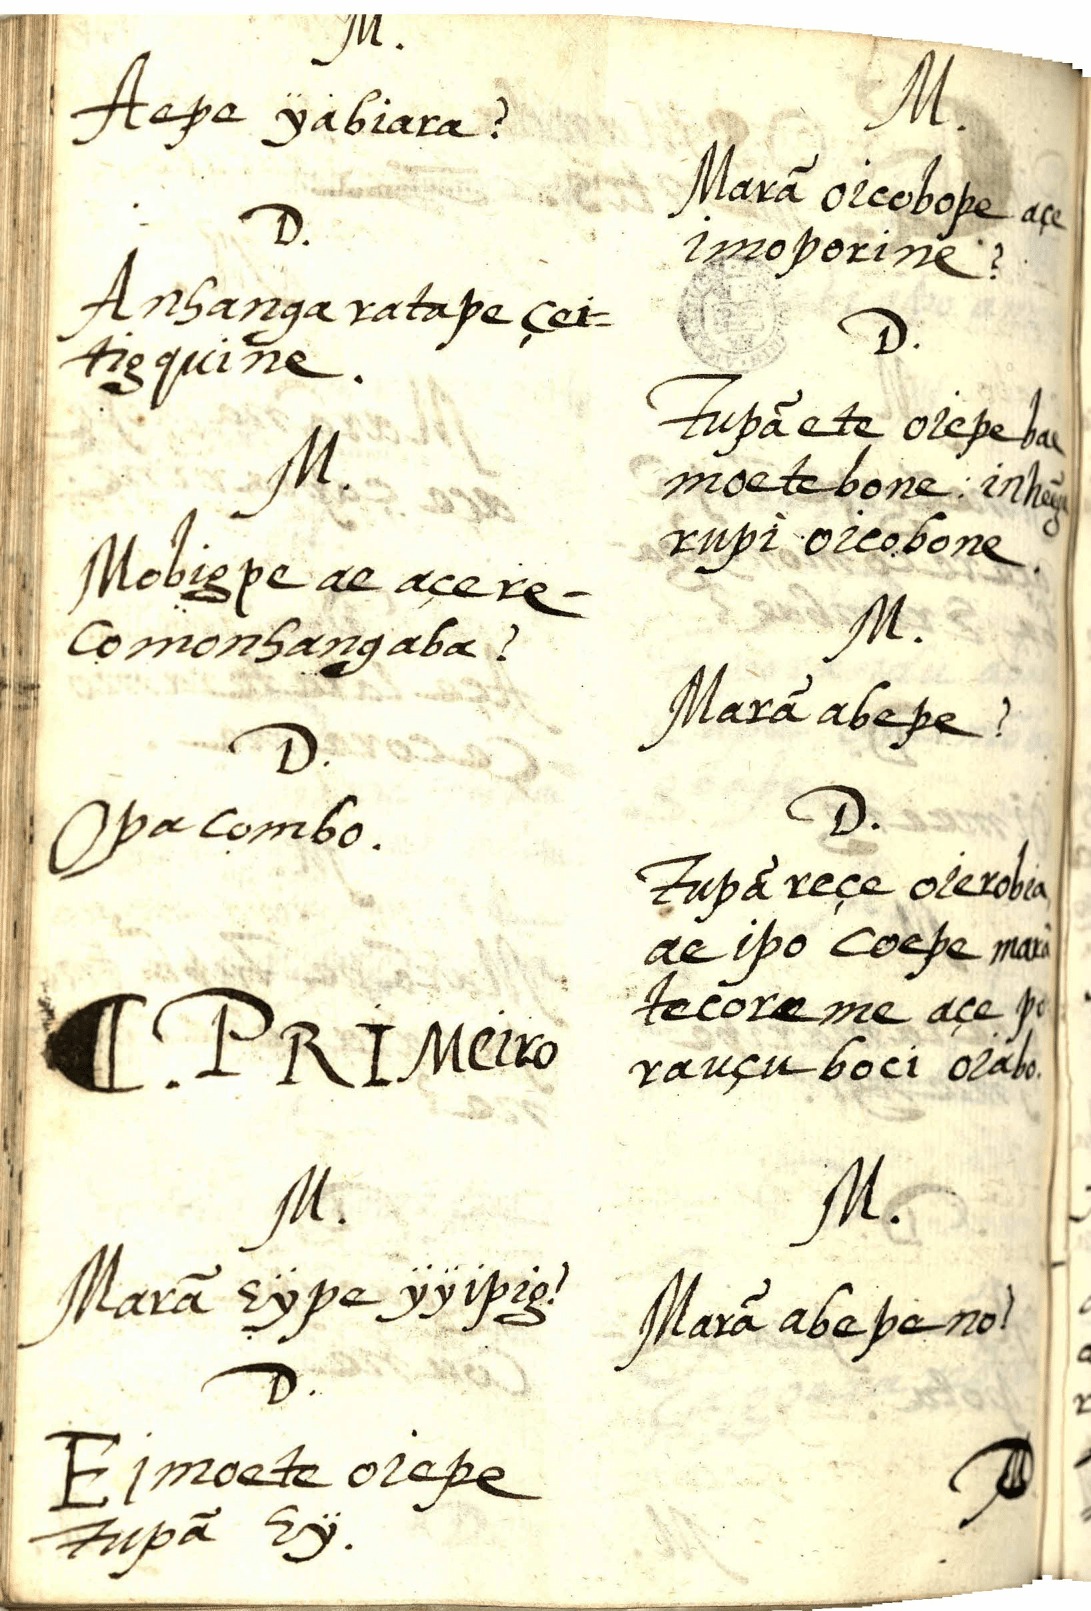 M.
Aepe ÿabiara?
D.
Anhanga ratape çei=
tigquine.
M.
Mobigpe ae açe re-
comonhangaba?
D.
Opacombo.
C. PRIMeiro
M.
Marã eÿpe ÿÿipig?
D.
Eimoete oiepe
tupã eÿ.
M.
Marã oicobope açe
imoporine?
D.
Tupã ete oiepe bae
moetebone: inheȳga
rupi oicobone.
M.
Marã abepe?
D.
Tupã reçe oierobia
ae ipo coepe marã
tecoreme açe po
rauçu boci oiabo.
M.
Marã abepe no?
D